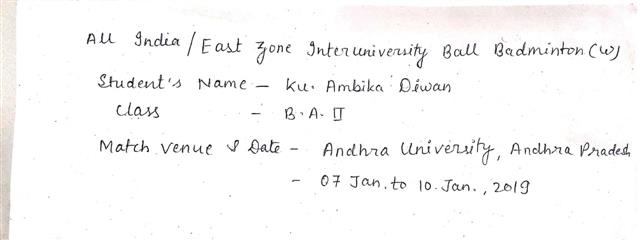 All India / East Zone Interuniversity Ball Badminton (W)
Student's Name - Ku. Ambika Diwan
Class - B.A. II
Match venue & Date - Andhra University, Andhra Pradesh
- 07 Jan. to 10. Jan., 2019